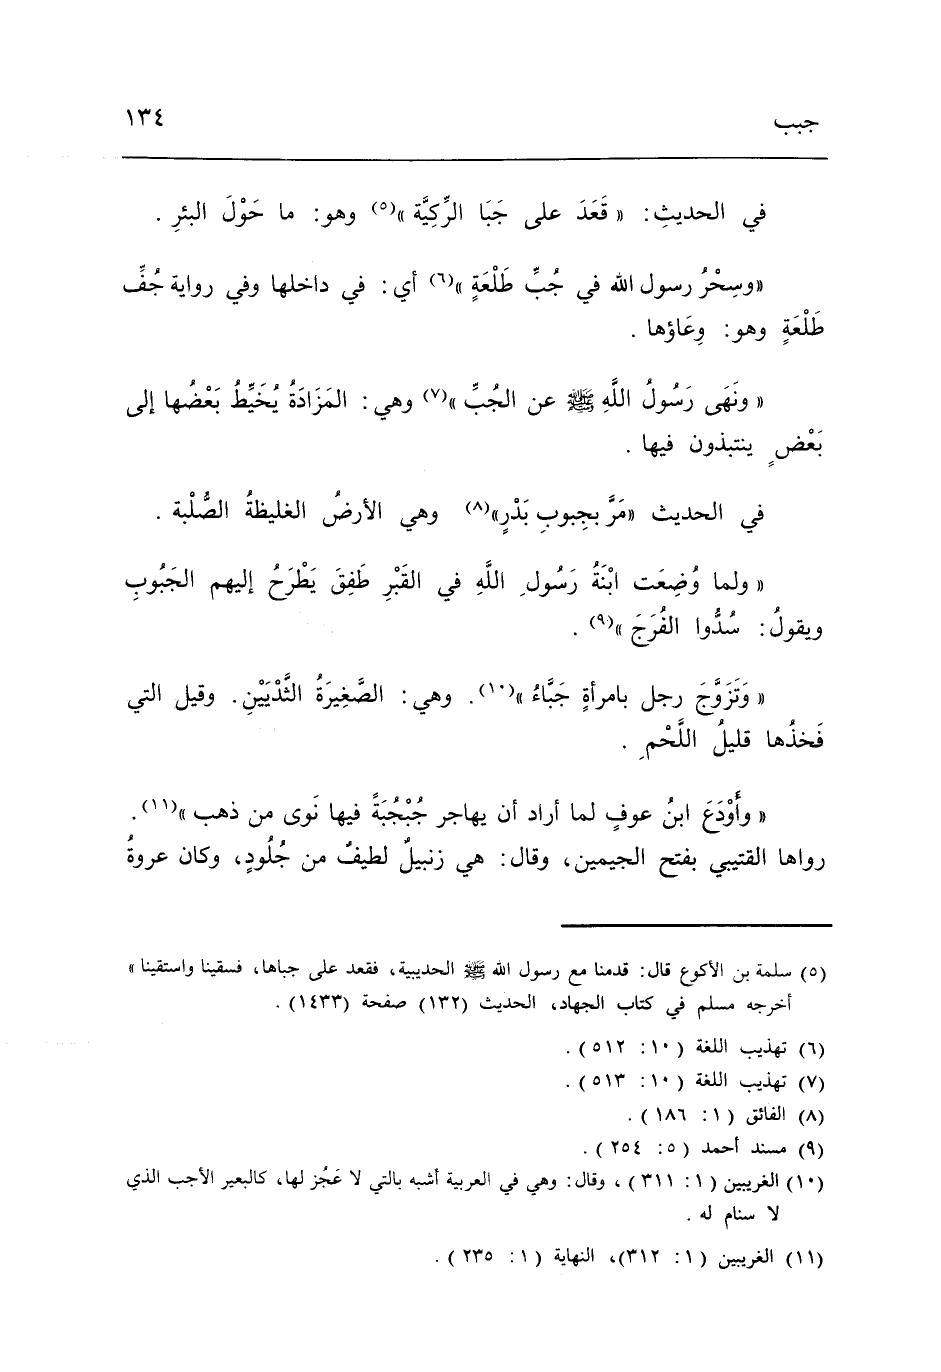 جبب ١٣٤
في الحديثِ: « قَعَدَ على جَبَا الرَّكِيَّة »(٥) وهو: ما حَوْلَ البئرِ .
«وسِحْرُ رسول الله في جُبِّ طَلْعَةٍ »(٦) أي: في داخلها وفي رواية جُفِّ
طَلْعَةٍ وهو: وِعَاؤها .
« ونَهَى رَسُولُ اللَّهِ ﷺ عن الجُبِّ »(٧) وهي: المَزَادَةُ يُخَيِّطُ بَعْضُها إلى
بَعْضٍ ينتبذون فيها .
في الحديث «مَرَّ بجِبوبِ بَدْرٍ»(٨) وهي الأرضُ الغليظةُ الصُّلْبة .
« ولما وُضِعَت ابْنَةُ رَسُولِ اللَّهِ في القَبْرِ طَفِقَ يَطْرَحُ إليهم الجَبُوبِ
ويقولُ: سُدُّوا الفُرَجَ »(٩) .
« وَتَزَوَّجَ رجل بامرأةٍ جَبَّاءُ »(١٠). وهي: الصَّغِيرَةُ الثَّدْيَيْنِ. وقيل التي
فَخذُها قليلُ اللَّحْمِ .
« وأَوْدَعَ ابنُ عوفٍ لما أراد أن يهاجر جُبْجُبَةً فيها نَوى من ذهب »(١١).
رواها القتيبي بفتح الجيمين، وقال: هي زنبيلٌ لطيفٌ من جُلُودٍ، وكان عروةُ
(٥) سلمة بن الأكوع قال: قدمنا مع رسول الله ﷺ الحديبية، فقعد على جباها، فسقينا واستقينا »
أخرجه مسلم في كتاب الجهاد، الحديث (١٣٢) صفحة (١٤٣٣) .
(٦) تهذيب اللغة (١٠: ٥١٢) .
(٧) تهذيب اللغة (١٠: ٥١٣) .
(٨) الفائق (١: ١٨٦) .
(٩) مسند أحمد (٥: ٢٥٤) .
(١٠) الغريبين (١: ٣١١) ، وقال: وهي في العربية أشبه بالتي لا عَجُز لها، كالبعير الأجب الذي
لا سنام له .
(١١) الغريبين (١: ٣١٢)، النهاية (١: ٢٣٥) .